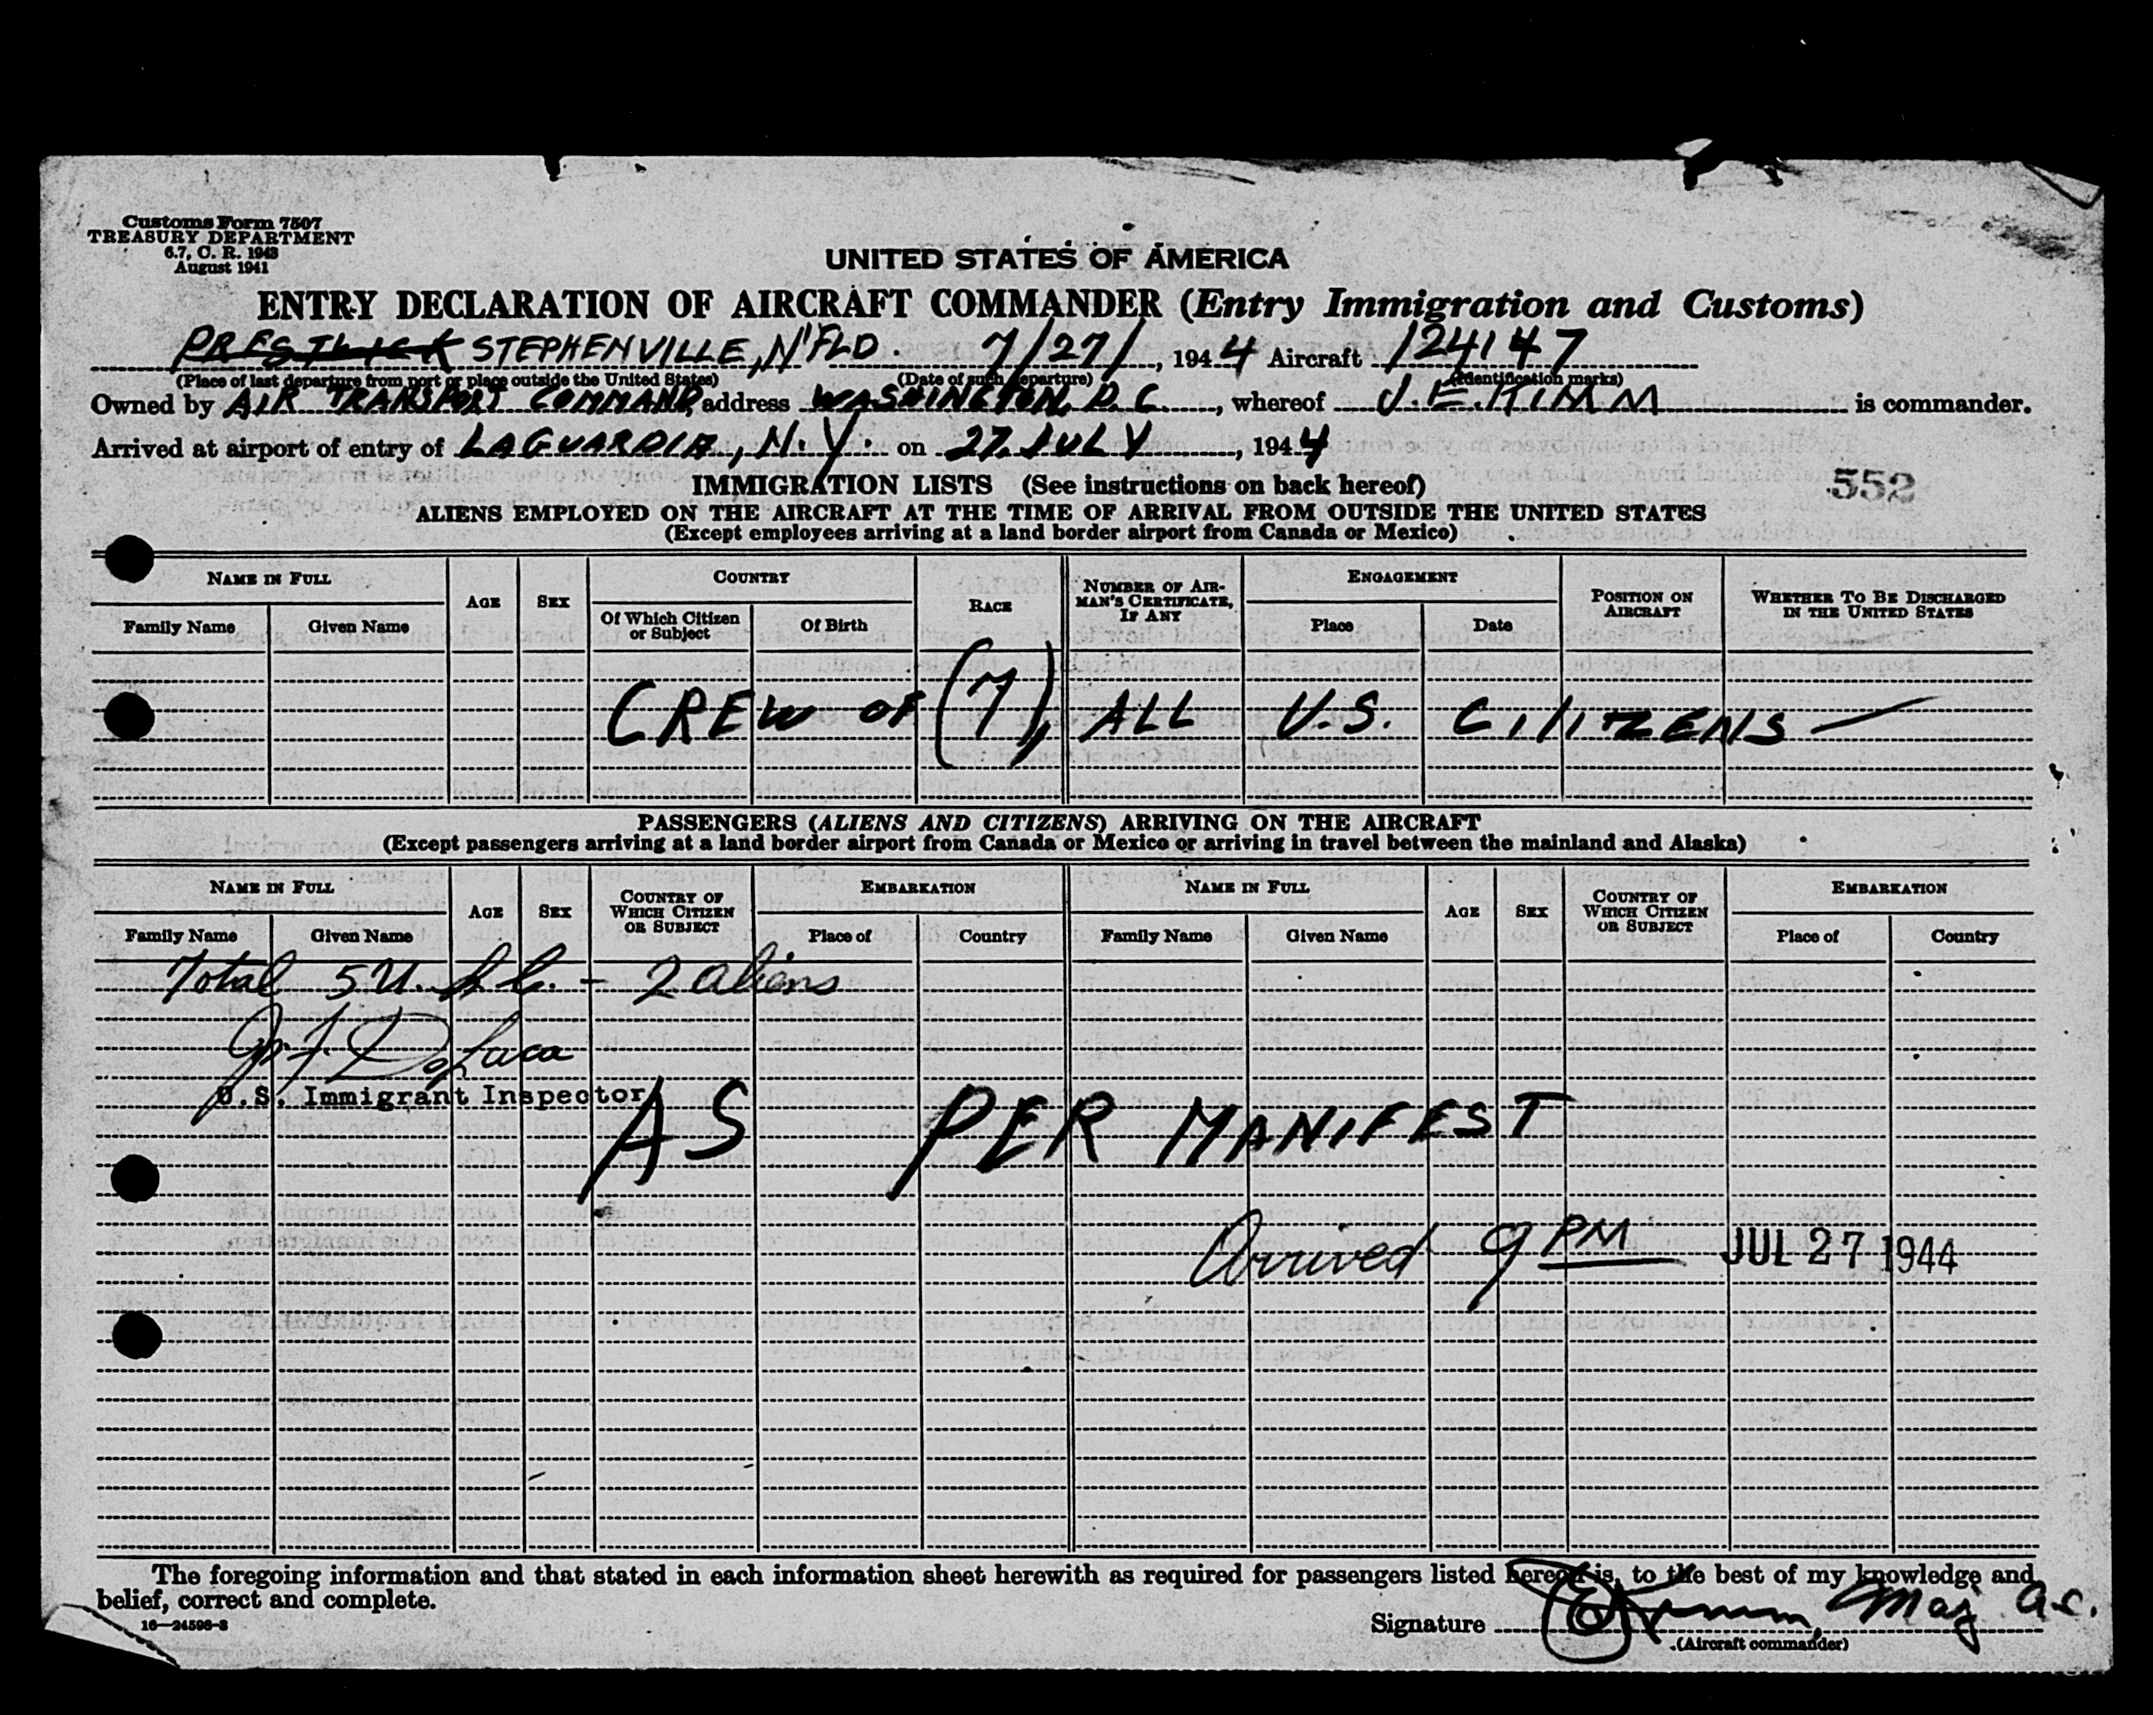 Customs Form 7507
TREASURY DEPARTMENT
6.7, C. R. 1943
August 1941
UNITED STATES OF AMERICA
ENTRY DECLARATION OF AIRCRAFT COMMANDER (Entry Immigration and Customs)
PRESTWICK STEPHENVILLE, N'FLD. 7/27/, 1944 Aircraft 124147
(Place of last departure from port or place outside the United States) (Date of such departure) (Identification marks)
Owned by AIR TRANSPORT COMMAND, address WASHINGTON, D.C., whereof J. E. KIMM is commander.
Arrived at airport of entry of LAGUARDIA, N.Y. on 27 JULY, 1944
IMMIGRATION LISTS (See instructions on back hereof)
552
ALIENS EMPLOYED ON THE AIRCRAFT AT THE TIME OF ARRIVAL FROM OUTSIDE THE UNITED STATES
(Except employees arriving at a land border airport from Canada or Mexico)
NAME IN FULL AGE SEX COUNTRY RACE NUMBER OF AIRMAN'S CERTIFICATE, IF ANY ENGAGEMENT POSITION ON AIRCRAFT WHETHER TO BE DISCHARGED IN THE UNITED STATES
Family Name Given Name Of Which Citizen or Subject Of Birth Place Date
CREW OF (7), ALL U.S. CITIZENS
PASSENGERS (ALIENS AND CITIZENS) ARRIVING ON THE AIRCRAFT
(Except passengers arriving at a land border airport from Canada or Mexico or arriving in travel between the mainland and Alaska)
NAME IN FULL AGE SEX COUNTRY OF WHICH CITIZEN OR SUBJECT EMBARKATION NAME IN FULL AGE SEX COUNTRY OF WHICH CITIZEN OR SUBJECT EMBARKATION
Family Name Given Name Place of Country Family Name Given Name Place of Country
Total 5 U.S.C. - 2 aliens
DeLuca
U.S. Immigrant Inspector
AS PER MANIFEST
Arrived 9 PM JUL 27 1944
The foregoing information and that stated in each information sheet herewith as required for passengers listed hereon is, to the best of my knowledge and
belief, correct and complete.
16—24596-3
Signature Kimm, Maj A.C.
(Aircraft commander)